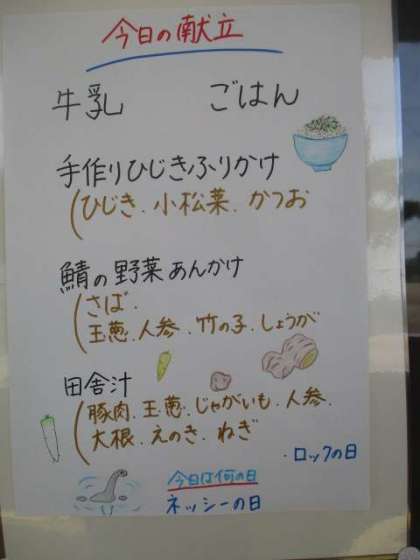 今日の献立
牛乳 ごはん
手作りひじきふりかけ
(ひじき.小松菜.かつお
鯖の野菜あんかけ
(さば.
玉葱.人参.竹の子.しょうが
田舎汁
(豚肉.玉葱.じゃがいも.人参.
大根.えのき.ねぎ
・ロックの日
今日は何の日
ネッシーの日